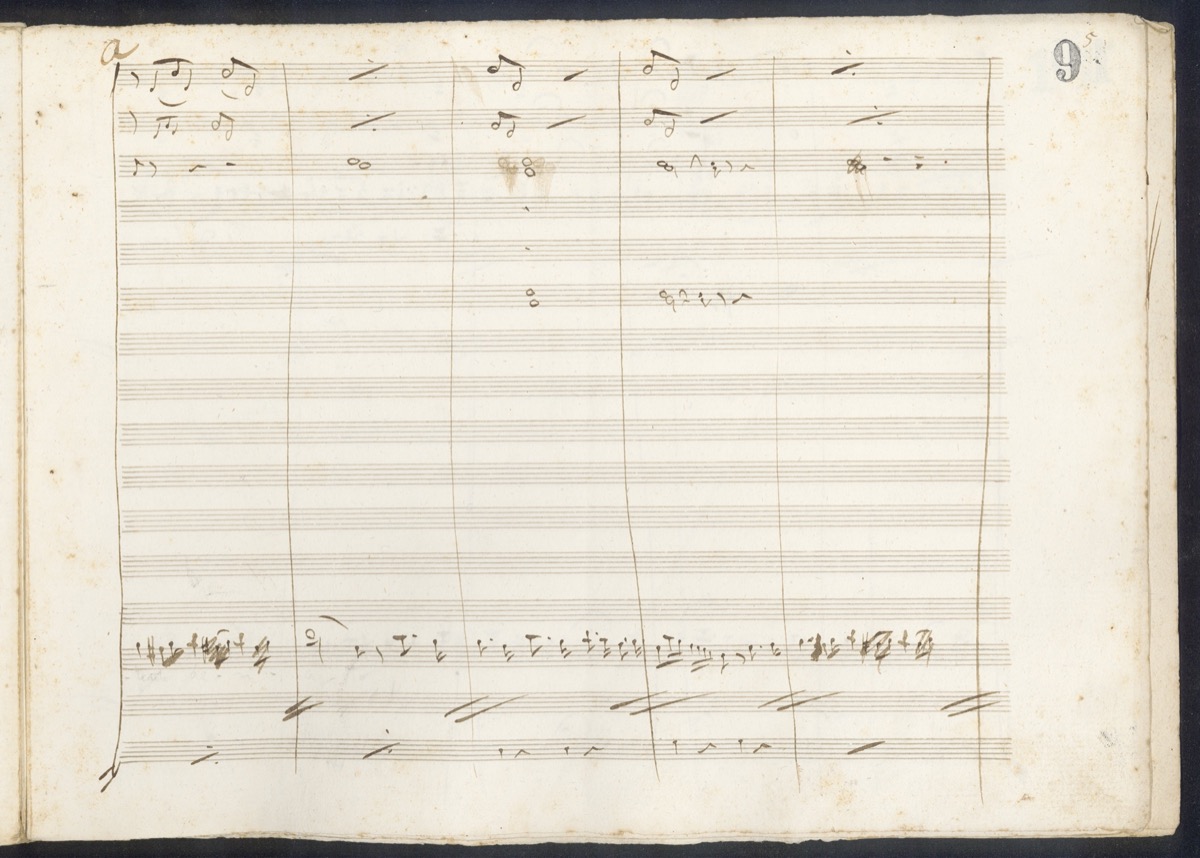 a
9
5